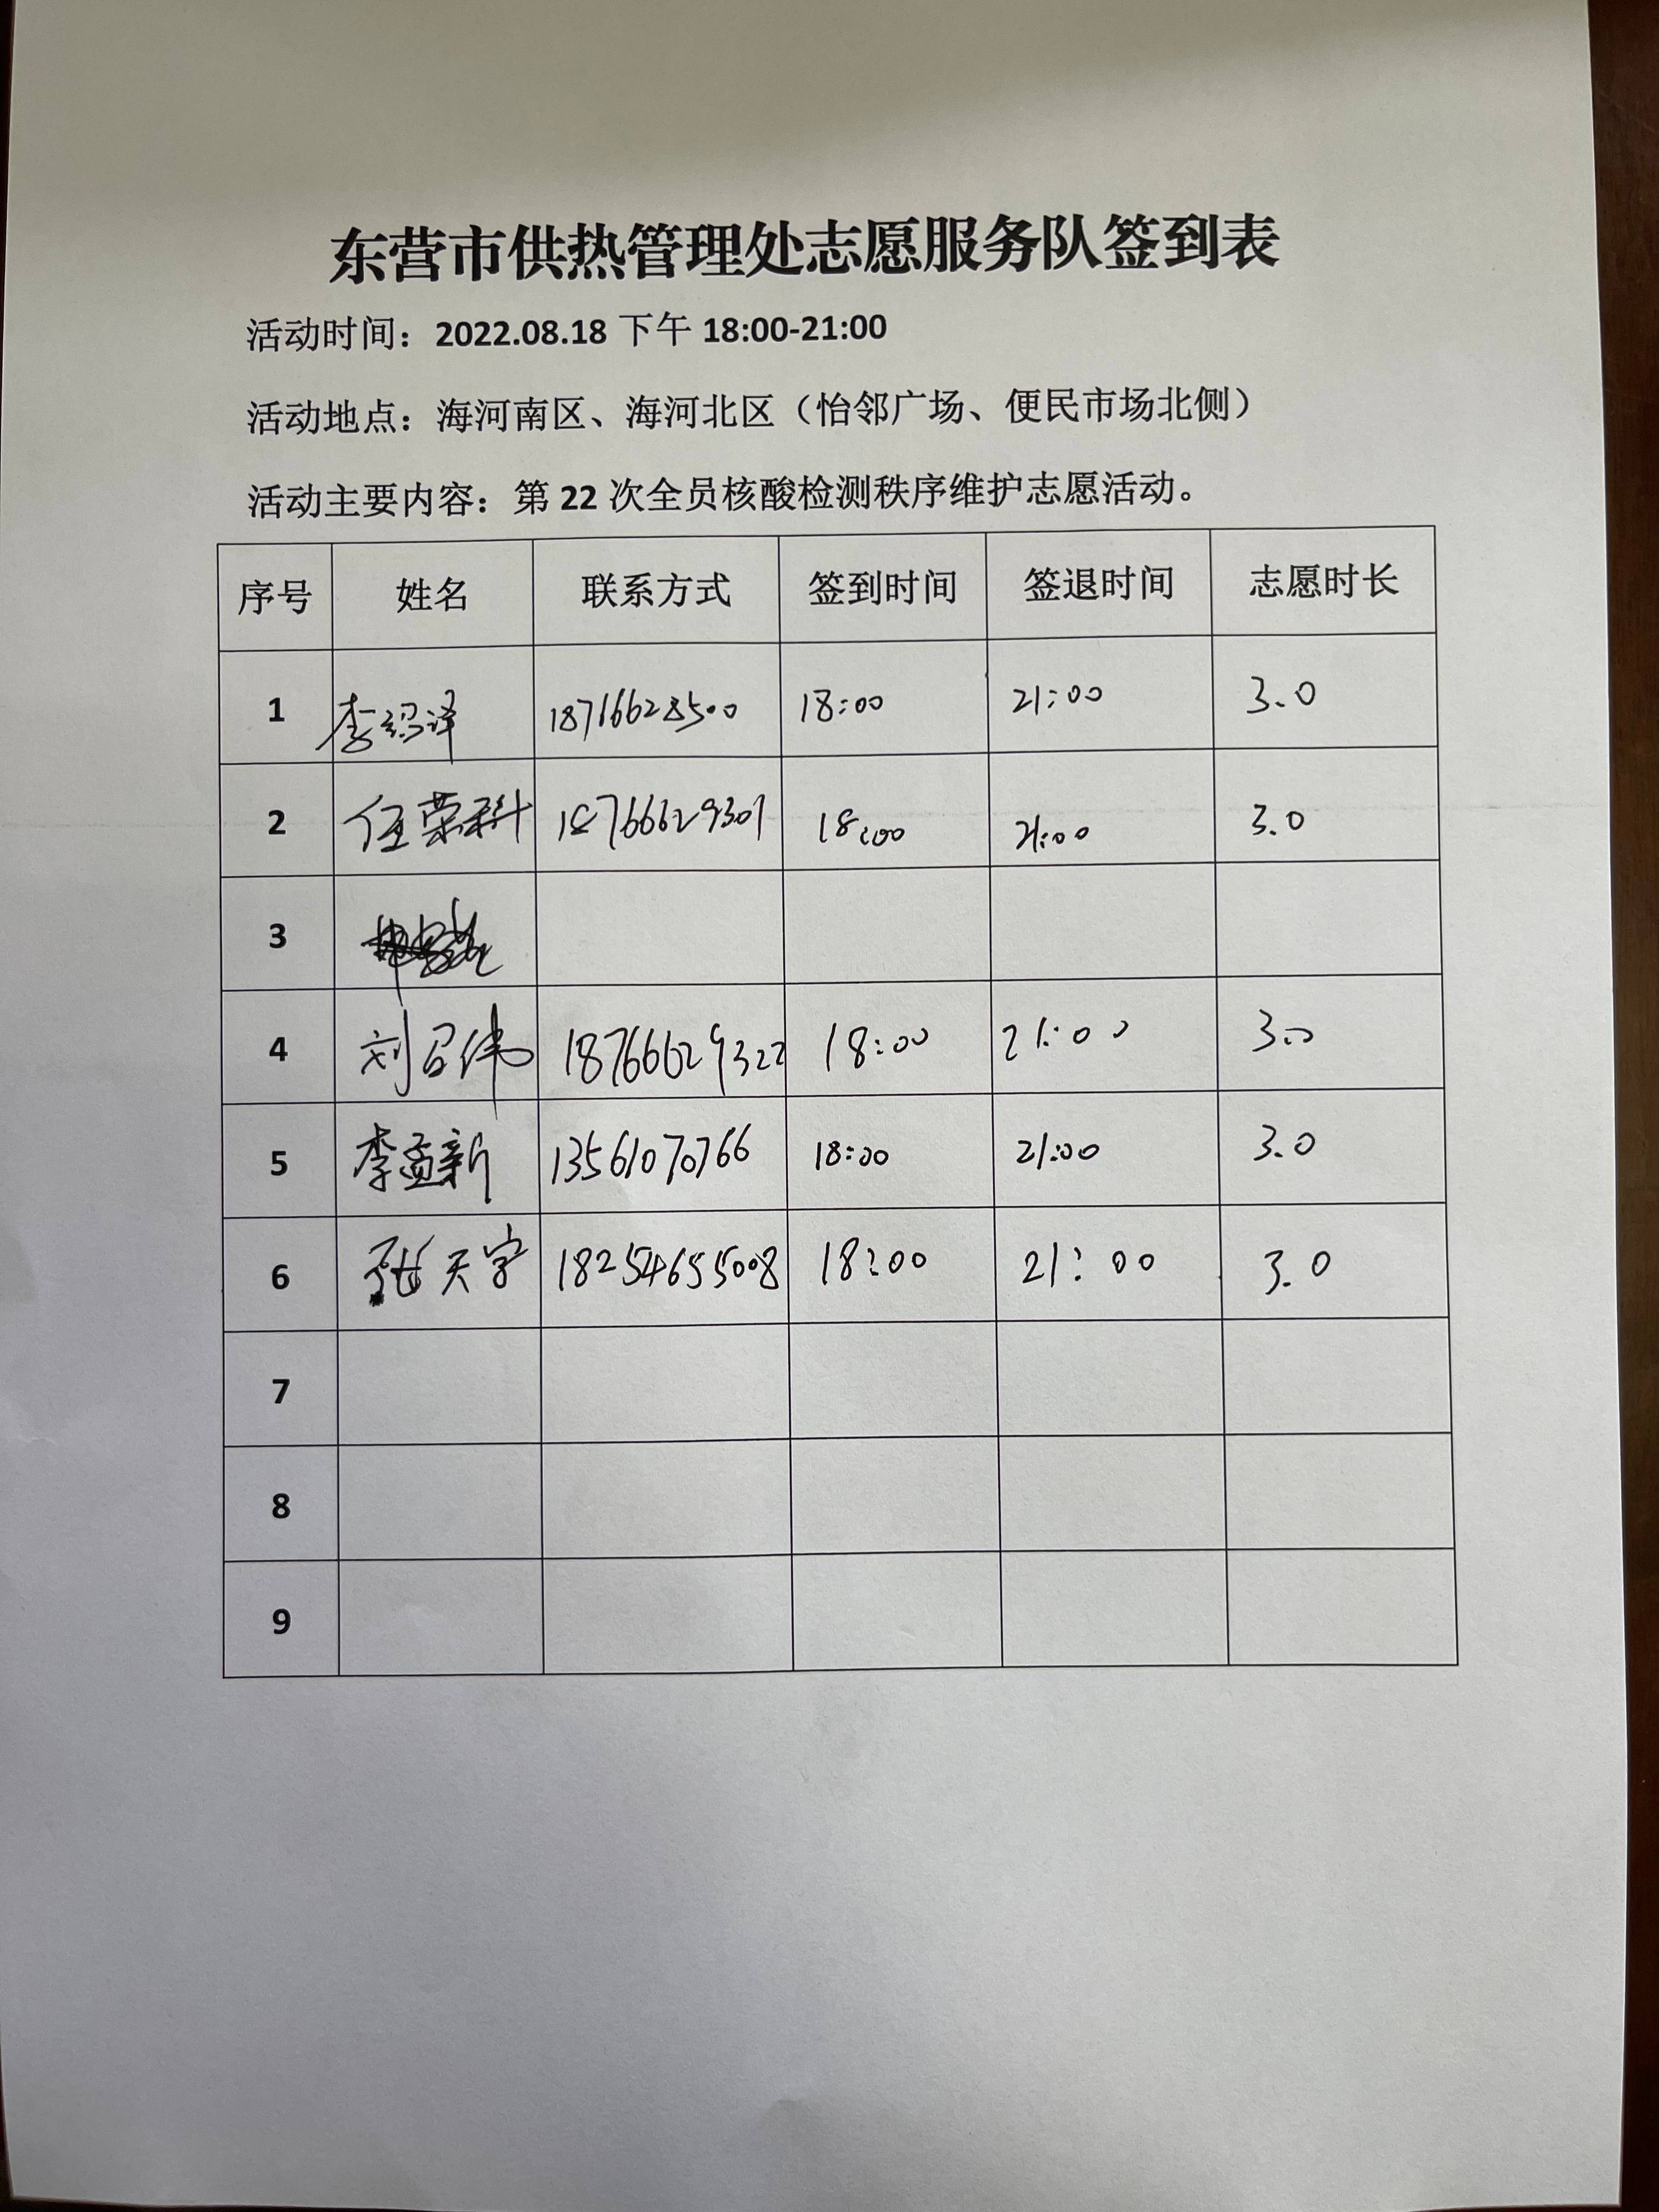 东营市供热管理处志愿服务队签到表
活动时间：2022.08.18 下午 18:00-21:00
活动地点：海河南区、海河北区（怡邻广场、便民市场北侧）
活动主要内容：第 22 次全员核酸检测秩序维护志愿活动。
序号 姓名 联系方式 签到时间 签退时间 志愿时长
1 李绍泽 18766628500 18:00 21:00 3.0
2 任荣科 18766629301 18:00 21:00 3.0
3
4 刘召伟 18766629322 18:00 21:00 3.0
5 李孟新 13561070766 18:00 21:00 3.0
6 张天宇 18254655008 18:00 21:00 3.0
7
8
9